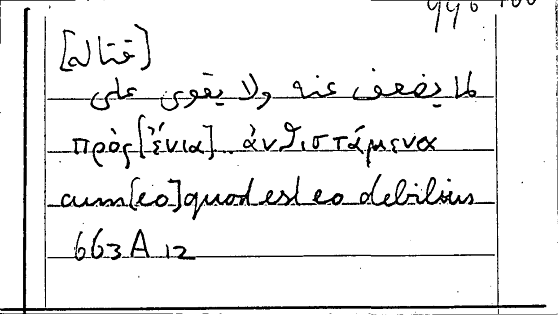 [قتاله]
لما يضعف عنه ولا يقوى على
πρὸς [ἔνια] ἀνθιστάμενα
cum [eo] quod est eo debilius
663 A 12